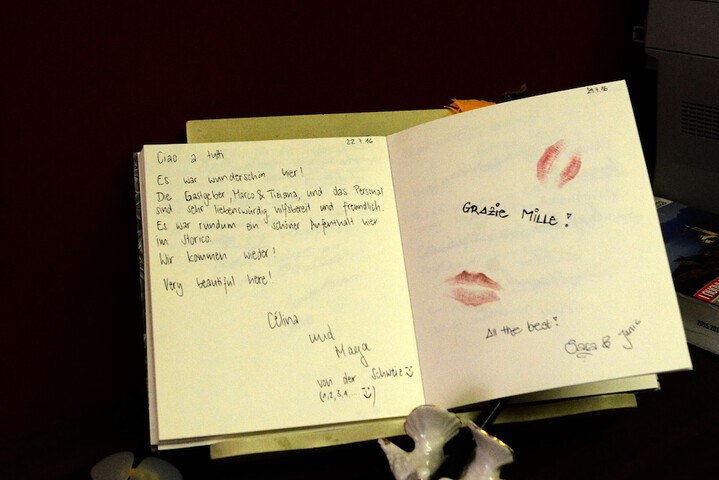 22.7.16
Ciao a tutti
Es war wunderschön hier!
Die Gastgeber, Marco & Tiziana, und das Personal
sind sehr liebenswürdig, hilfsbereit und freundlich.
Es war rundum ein schöner Aufenthalt hier
im Storico.
Wir kommen wieder!
Very beautiful here!
Célina
und
Maya
von der Schweiz
(1,2,3,4,...)
GRAZIE MILLE!
All the best!
Sara &